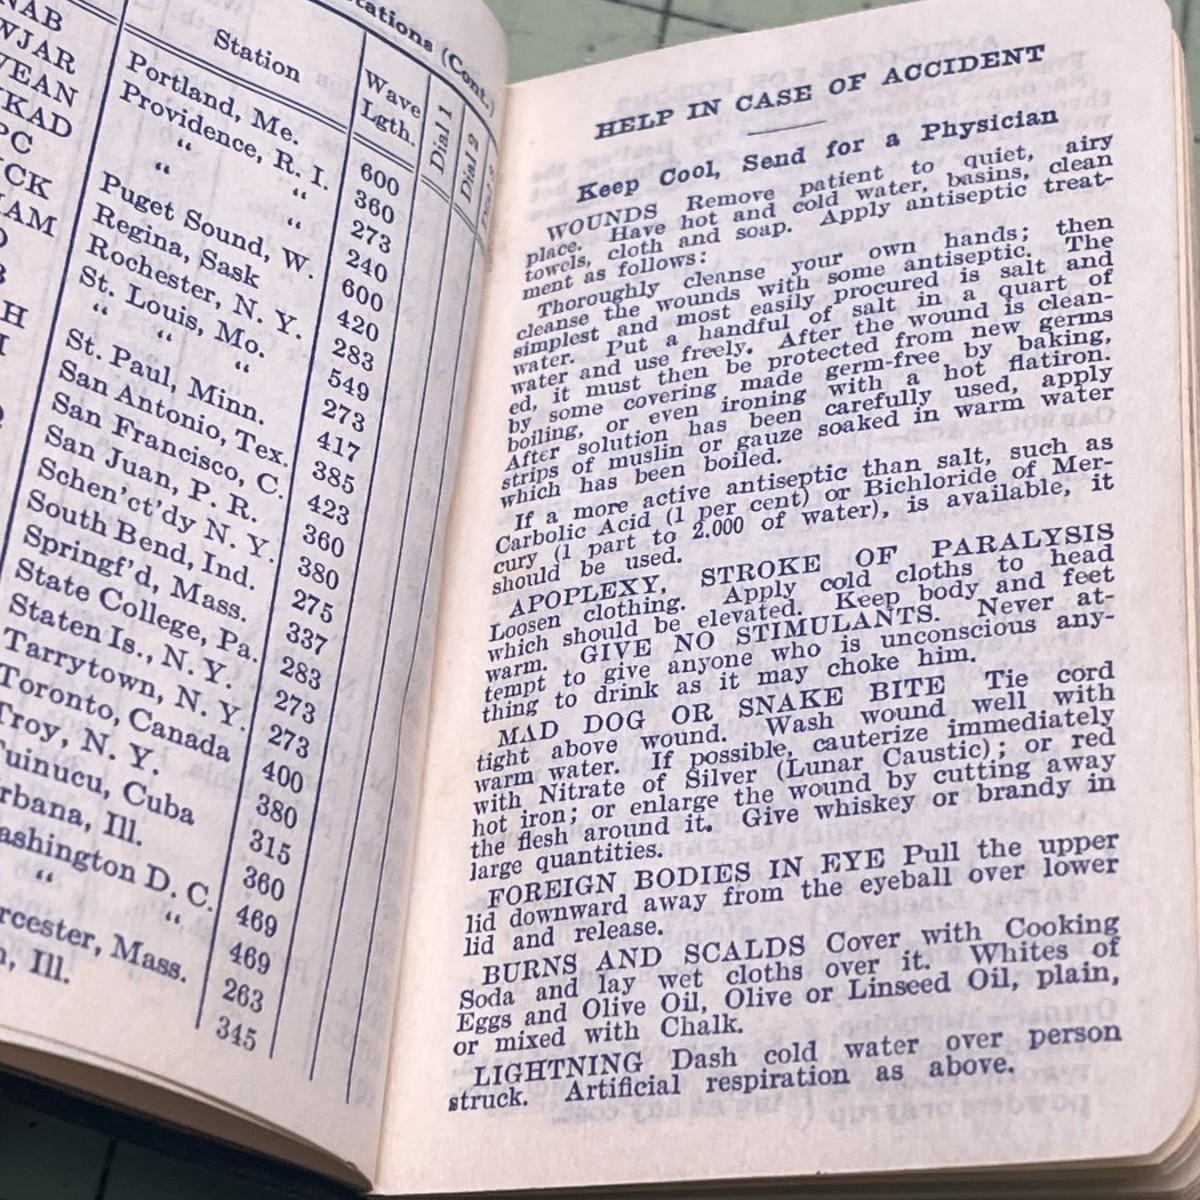 tations (Cont.)
Station
Wave Lgth.
Dial 1
Dial 2
NAB
WJAR
WEAN
KAD
PC
CK
AM
H
Portland, Me. 600
Providence, R. I. 360
“ “ 273
“ “ 240
Puget Sound, W. 600
Regina, Sask 420
Rochester, N. Y. 283
St. Louis, Mo. 549
“ “ 273
“ “ 417
St. Paul, Minn. 385
San Antonio, Tex. 423
San Francisco, C. 360
San Juan, P. R. 380
Schen’ct’dy N. Y. 275
South Bend, Ind. 337
Springf’d, Mass. 283
State College, Pa. 273
Staten Is., N. Y. 273
Tarrytown, N. Y. 400
Toronto, Canada 380
Troy, N. Y. 315
uinucu, Cuba 360
rbana, Ill. 469
ashington D. C. 469
“ “ 263
rcester, Mass. 345
, Ill.
HELP IN CASE OF ACCIDENT
Keep Cool, Send for a Physician
WOUNDS Remove patient to quiet, airy
place. Have hot and cold water, basins, clean
towels, cloth and soap. Apply antiseptic treat-
ment as follows:
Thoroughly cleanse your own hands; then
cleanse the wounds with some antiseptic. The
simplest and most easily procured is salt and
water. Put a handful of salt in a quart of
water and use freely. After the wound is clean-
ed, it must then be protected from new germs
by some covering made germ-free by baking,
boiling, or even ironing with a hot flatiron.
After solution has been carefully used, apply
strips of muslin or gauze soaked in warm water
which has been boiled.
If a more active antiseptic than salt, such as
Carbolic Acid (1 per cent) or Bichloride of Mer-
cury (1 part to 2.000 of water), is available, it
should be used.
APOPLEXY, STROKE OF PARALYSIS
Loosen clothing. Apply cold cloths to head
which should be elevated. Keep body and feet
warm. GIVE NO STIMULANTS. Never at-
tempt to give anyone who is unconscious any-
thing to drink as it may choke him.
MAD DOG OR SNAKE BITE Tie cord
tight above wound. Wash wound well with
warm water. If possible, cauterize immediately
with Nitrate of Silver (Lunar Caustic); or red
hot iron; or enlarge the wound by cutting away
the flesh around it. Give whiskey or brandy in
large quantities.
FOREIGN BODIES IN EYE Pull the upper
lid downward away from the eyeball over lower
lid and release.
BURNS AND SCALDS Cover with Cooking
Soda and lay wet cloths over it. Whites of
Eggs and Olive Oil, Olive or Linseed Oil, plain,
or mixed with Chalk.
LIGHTNING Dash cold water over person
struck. Artificial respiration as above.